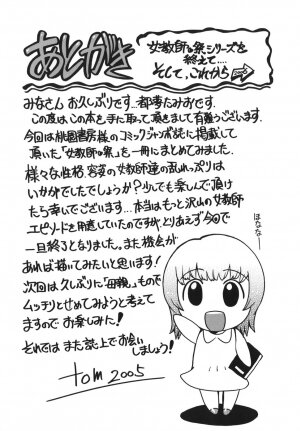 あとがき
女教師の祭シリーズを
終えて....
そして、これから
みなさん お久しぶりです...都孝たみおです。
この度はこの本を手に取って頂きまして有難うございます。
今回は桃園書房様のコミックジャンボ誌に掲載して
頂いた「女教師の祭」を一冊にまとめてみました。
様々な性格、容姿の女教師達の乱れっぷりは
いかがでしたでしょうか?少しでも楽しんで頂け
たら幸いでございます...本当はもっと沢山の女教師
エピソードを用意していたのですが、とりあえず今回で
一旦終了となりました。また機会が
あれば描いてみたいと思います!
次回は久しぶりに「母親」もので
ムッチリとせめてみようと考えて
ますのでお楽しみに!
それでは また誌上でお会いしましょう!
ほなな〜
tom 2005